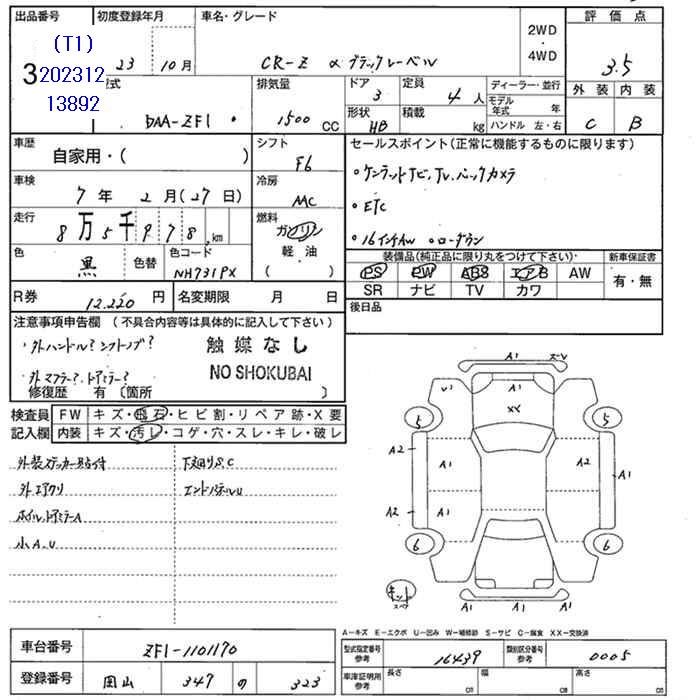 出品番号 初度登録年月 車名・グレード 評価点
(T1)
3 202312
13892
23 10月 CR-Z α ブラックレーベル 2WD ・ 4WD 3.5
型式 排気量 ドア 定員 ディーラー・並行 外装 内装
DAA-ZF1 1500 CC 3 4人 モデル年式 年 C B
形状 HB 積載 kg ハンドル 左・右
車歴 自家用・( ) シフト F6 セールスポイント(正常に機能するものに限ります)
車検 7年 2月(27日) 冷房 AAC
・ケンウッドナビ、TV、バックカメラ
・ETC
・16インチAW ・ローダウン
走行 8万5千978km 燃料 ガソリン 軽油 ( )
色 黒 色替 色コード NH731PX
装備品(純正品に限り丸をつけて下さい) 新車保証書
PS PW ABS エアB AW 有・無
SR ナビ TV カワ
R券 12,220円 名変期限 月 日 後日品
注意事項申告欄 (不具合内容等は具体的に記入して下さい)
・外ハンドル? シフトノブ? 触媒なし
NO SHOKUBAI
・外マフラー? ドアミラー?
修復歴 有 (箇所 )
検査員 FW キズ・飛石・ヒビ割・リペア跡・X要
記入欄 内装 キズ・汚レ・コゲ・穴・スレ・キレ・破レ
外装ステッカー貼付 下廻りS,C
外エアクリ エンドパネルU
ホイル、ドアミラーA
小A,U
A1
XX
5 5
A2 A1 A2 A1
A2 A1
6 6
A1 A1 A1
キット
スペア
A-キズ E-エクボ U-凹み W-補修跡 S-サビ C-腐食 XX-交換済
車台番号 ZF1-1101170
型式指定番号 参考 16439 類別区分番号 参考 0005
登録番号 岡山 347 の 323
車庫証明用 参考 長さ cm 幅 cm 高さ cm